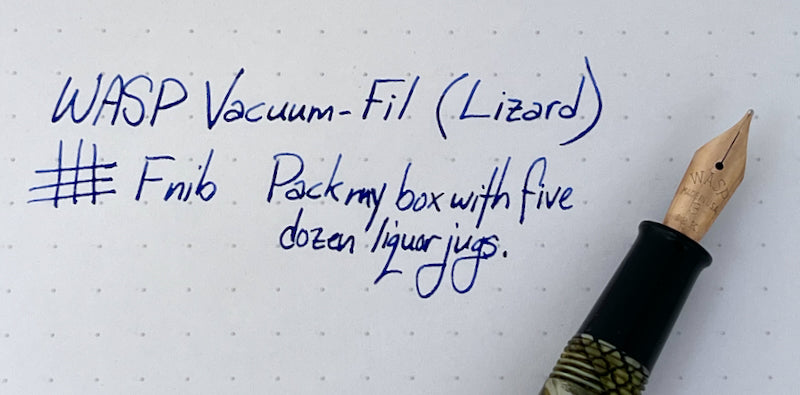 WASP Vacuum-Fil (Lizard)
F nib Pack my box with five
dozen liquor jugs.
WASP